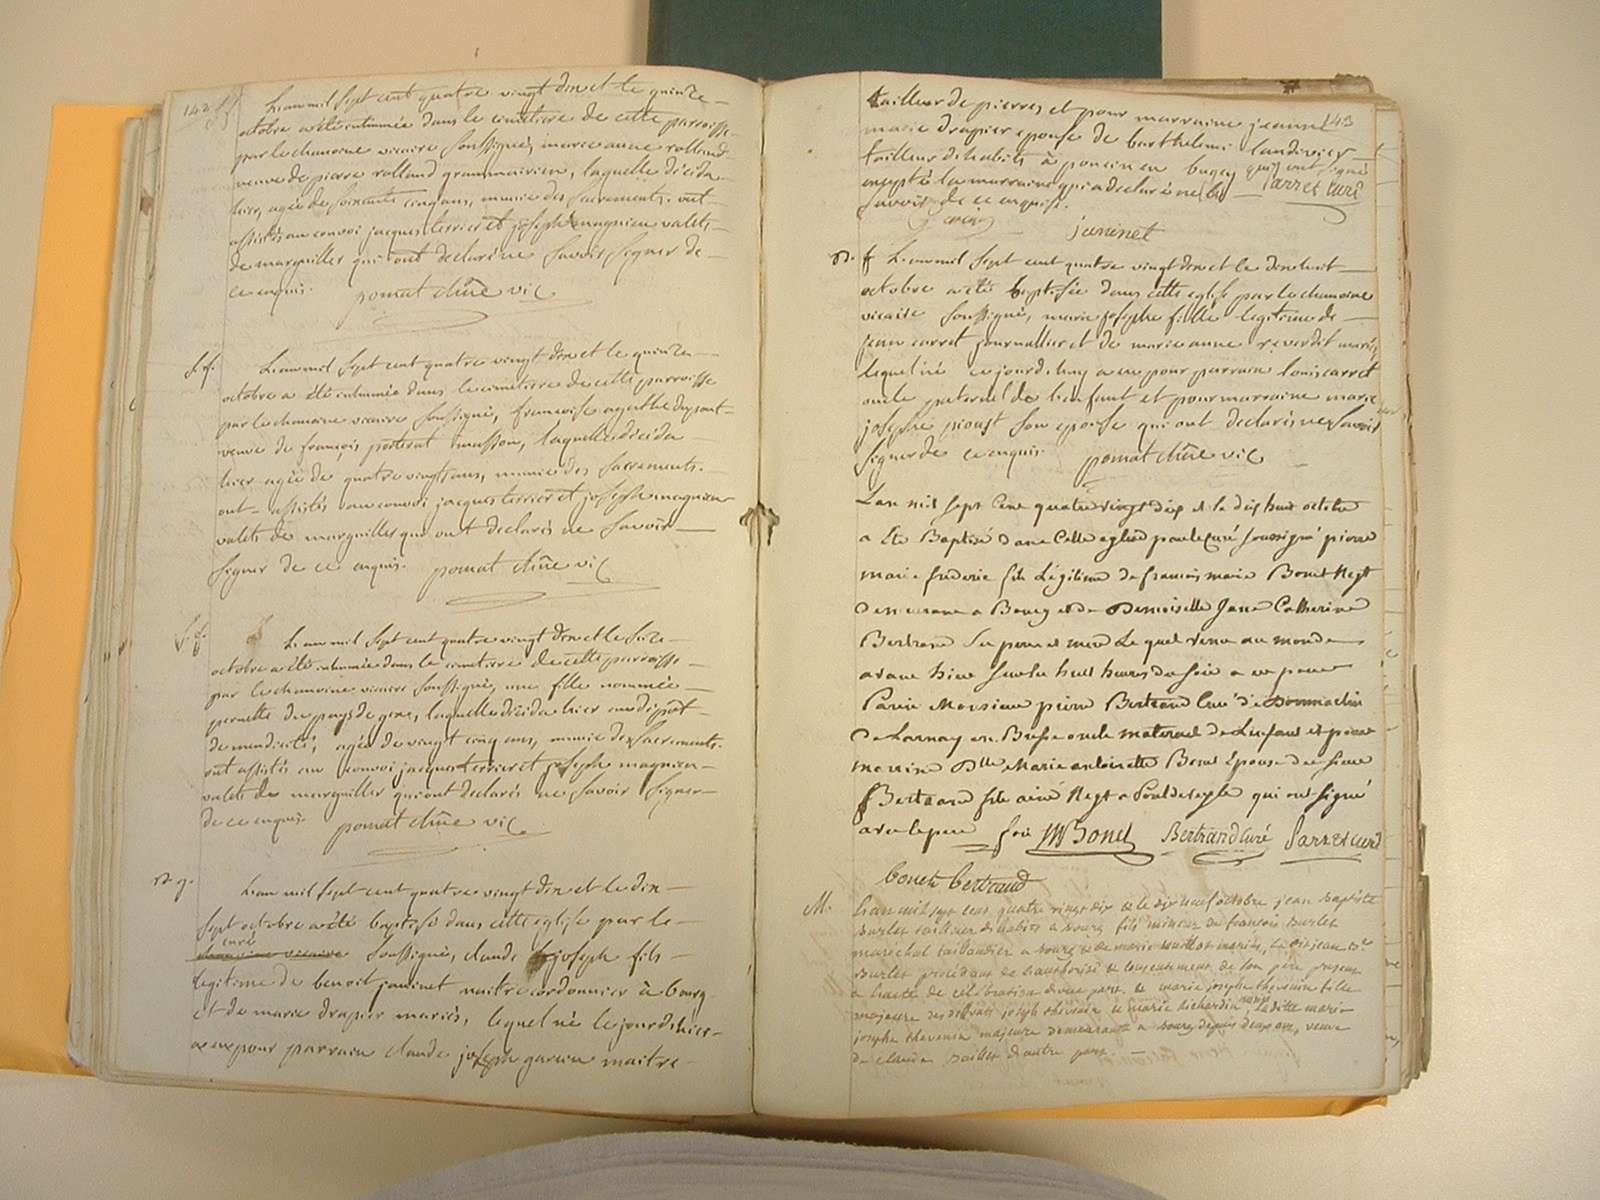 142
L'an mil sept cent quatre vingt dix et le quinze
octobre a été inhumée dans le cimetiere de cette parroisse
par le chanoine vicaire soussigné, marie anne rolland
veuve de pierre rolland grammairien, laquelle décéda
hier, agée de soixante cinq ans, munie des sacrements. ont
assistés au convoi jacques terrier et joseph magnien valets
de marguillier qui ont declaré ne savoir signer de
ce enquis. pomat chne vic
L'an mil sept cent quatre vingt dix et le quinze
octobre a été inhumée dans le cimetiere de cette parroisse
par le chanoine vicaire soussigné, francoise agathe dupont
veuve de françois masson, laquelle décéda
hier agée de quatre vingt ans, munie des sacrements.
ont assistés au convoi jacques terrier et joseph magnien
valets de marguillier qui ont declarés ne savoir
signer de ce enquis. pomat chne vic
L'an mil sept cent quatre vingt dix et le seize
octobre a été inhumée dans le cimetiere de cette parroisse
par le chanoine vicaire soussigné, une fille nommée
pernette du pays de gex, laquelle décéda hier au dépôt
de mendicité, agée de vingt cinq ans, munie des sacrements.
ont assistés au convoi jacques terrier et joseph magnien
valets de marguillier qui ont declarés ne savoir signer
de ce enquis. pomat chne vic
L'an mil sept cent quatre vingt dix et le dix
sept octobre a été baptisé dans cette eglise par le
curé
chanoine vicaire soussigné, claude joseph fils
legitime de benoit janinet maitre cordonnier à bourg
et de marie drapier mariés, lequel né le jour d'hier
a eu pour parrain claude joseph maitre
143
tailleur de pierres et pour marraine jeanne
marie drapier epouse de barthelemi
tailleur d'habits à poncin en bugey qui ont signé
excepté la marraine qui a declaré ne le
savoir de ce enquise. Sarret curé
janinet
L'an mil sept cent quatre vingt dix et le dix huit
octobre a été baptisée dans cette eglise par le chanoine
vicaire soussigné, marie josephe fille legitime de
jean carret journallier et de marie anne reverdit mariés
lequel né ce jourd'huy a eu pour parrain louis carret
oncle paternel de l'enfant et pour marraine marie
josephe son epouse qui ont declarés ne savoir
signer de ce enquis. pomat chne vic
L'an mil sept cent quatre vingt dix et le dix huit octobre
a été Baptisé dans cette eglise par le curé soussigné pierre
marie frederic fils Légitime de francois marie Bonet Negt
demeurant a Bourg et de Demoiselle Jane Catherine
Bertrand ses pere et mere Lequel venu au monde
avant hier sur les huit heures du soir a eu pour
Parin Monsieur pierre Bertrand Curé de Dommartin
de Larnay en Bresse oncle maternel de L'enfant et pour
marrine Dlle Marie antoinette Bonet Epouse de sieur
Bertrand fils ainé Negt a Pont de vesle qui ont signé
avec le pere MBonet Bertrand Curé Sarret curé
bonet bertrand
M. L'an mil sept cent quatre vingt dix et le dix neuf octobre jean baptiste
Burlet tailleur d'habits a bourg fils mineur de francois Burlet
maréchal taillandier a bourg et de marie mariés, Ledit jean Bte
Burlet procédant de l'authorité et consentement de son pere present
a l'acte de célébration d'une part. et marie josephe thevenin fille
majeure des défunts joseph thevenin et marie mariés Ladite marie
josephe thevenin majeure demeurante a bourg depuis deux ans, veuve
de claude d'autre part.